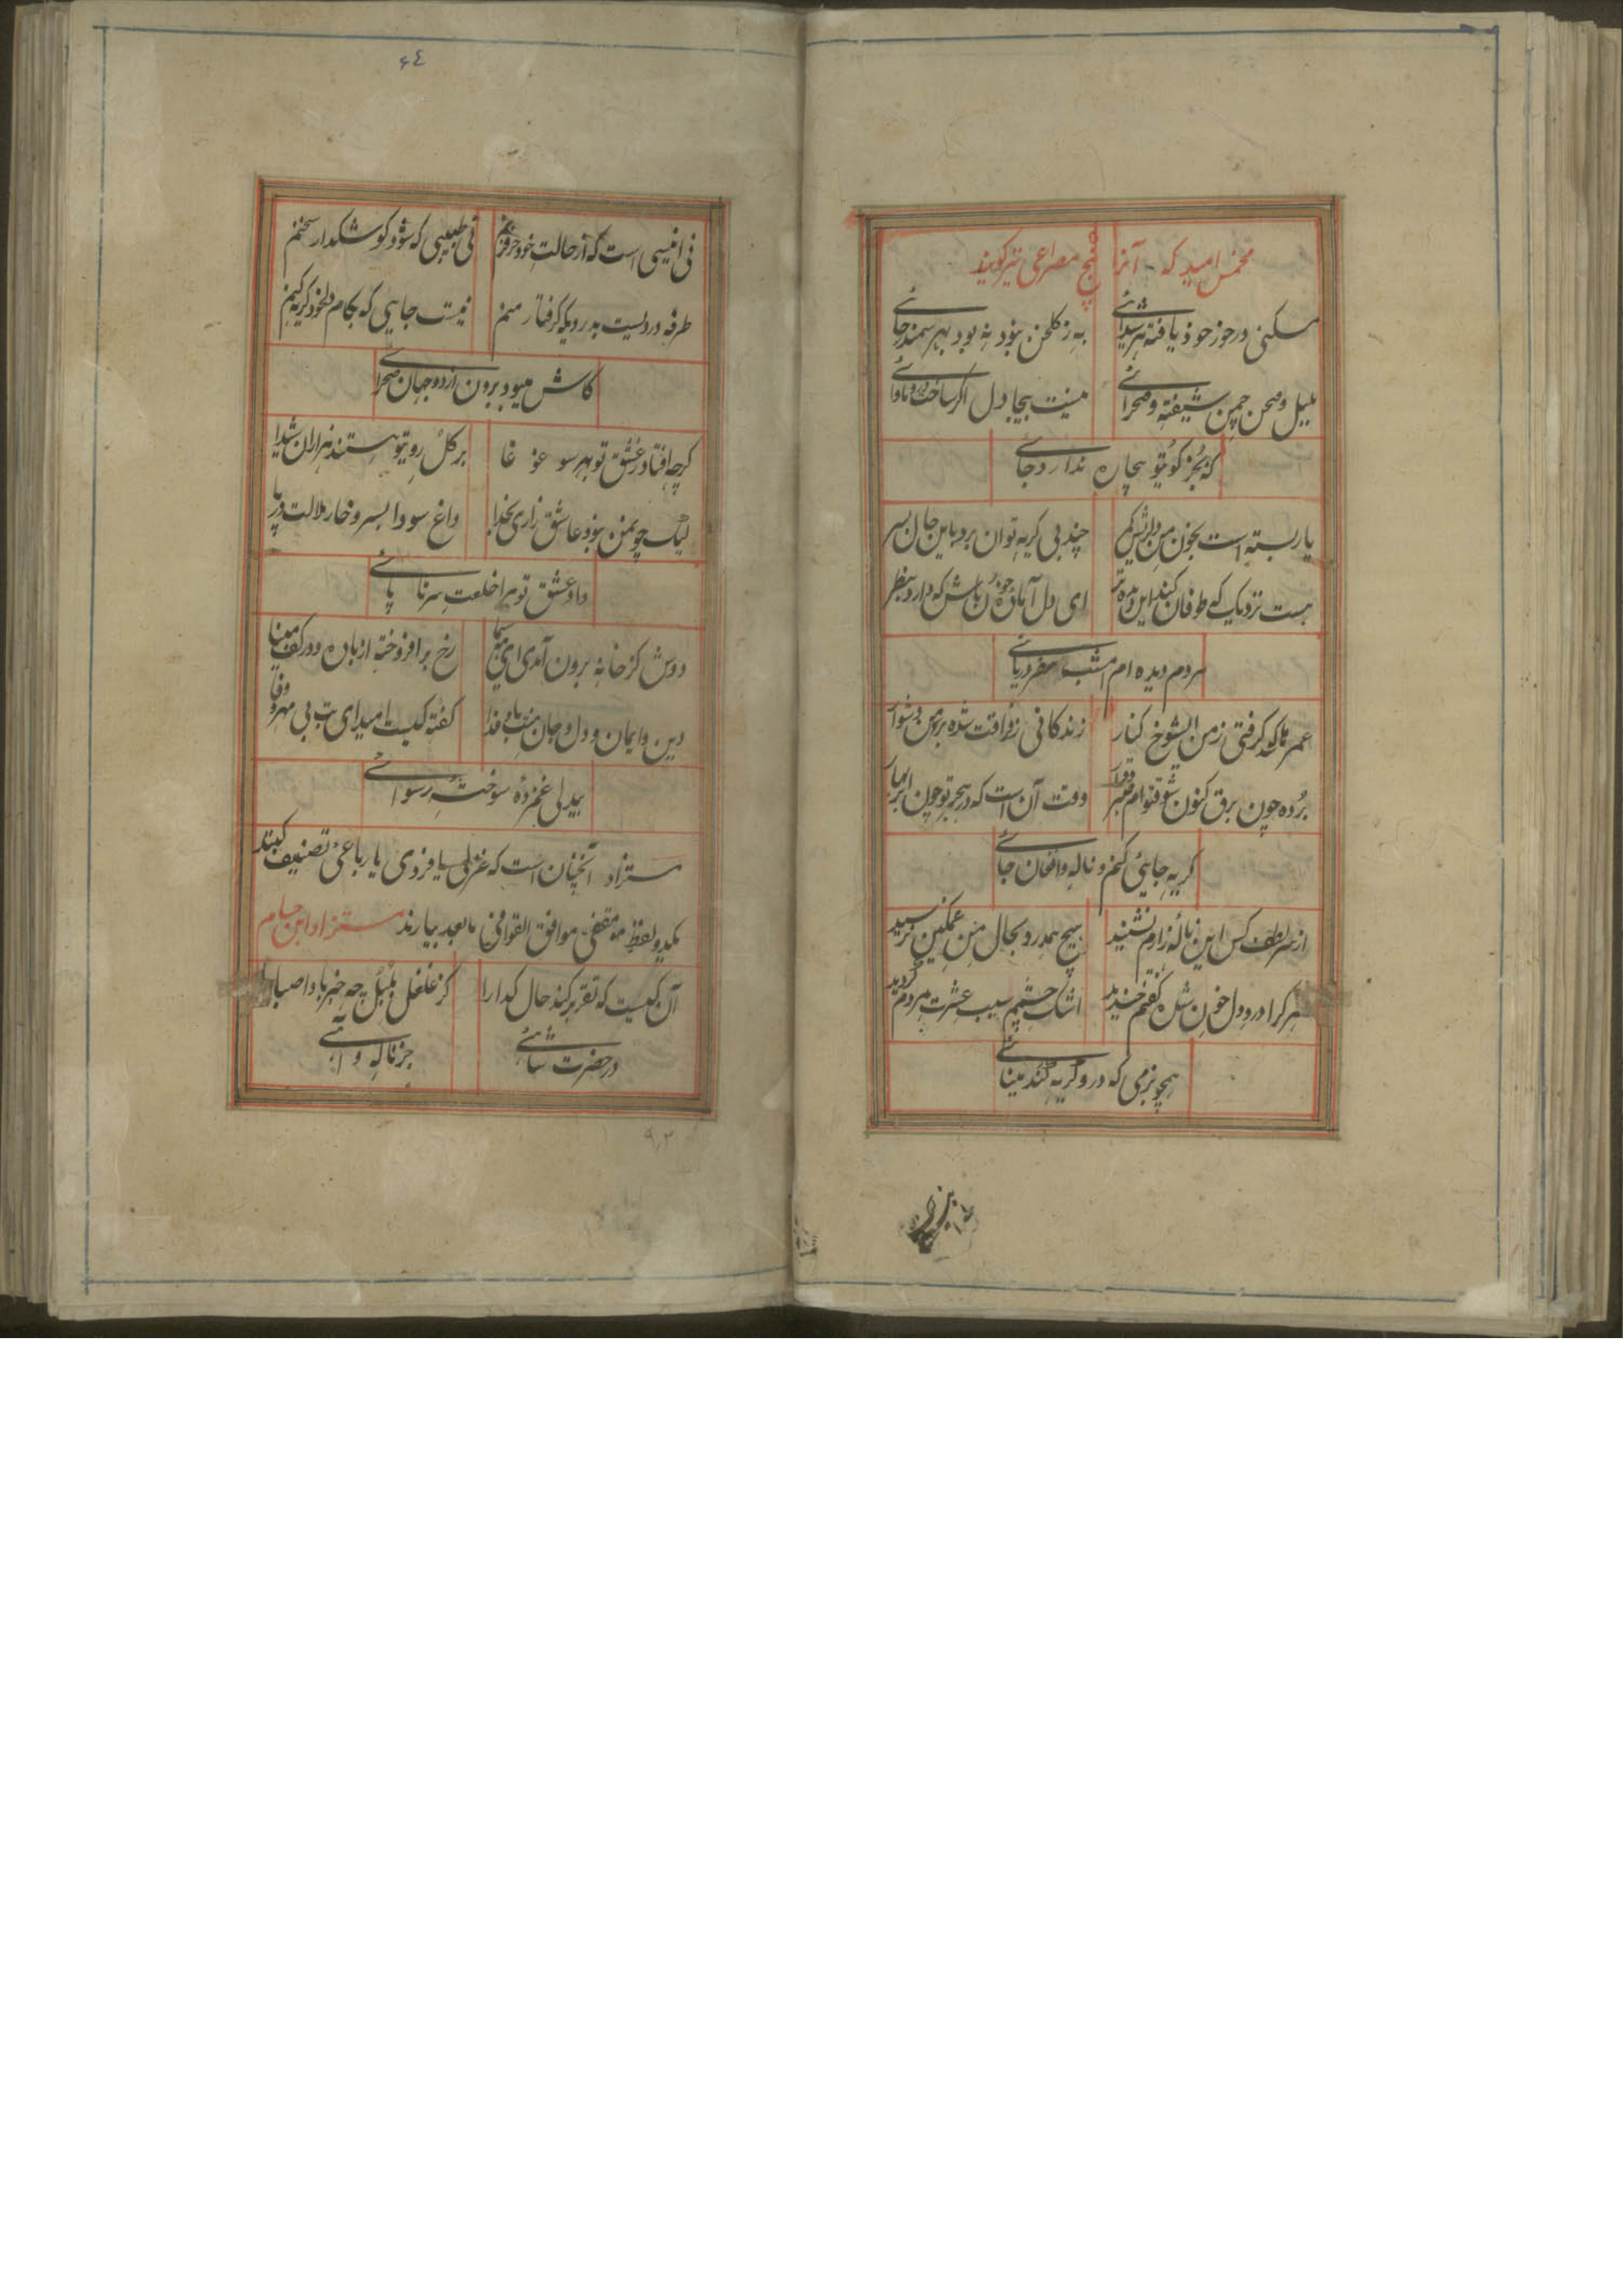 مخمس امید که آنرا پنج مصراعی نیز گویند
مسکنی در خور خود یافته هر شیدائی
به ز گلخن نبود نه بود بهر سمندر جائی
بلبل و صحن چمن شیفته و صحرائی
نیست بیجا دل اگر ساخت درو ماوائی
که بجز کوی تو بیچاره ندارد جائی
یار بسته است بخون من دلریش کمر
چند بی گریه توان برد باین جان بسر
هست نزدیک که طوفان کند این دیده تر
ای دل آماده خون باش که دارد بنظر
مردم دیده ام امشب سفر دریائی
عمرها شد که گرفتی ز من ای شوخ کنار
زندگانی ز فراقت شده بر من دشوار
برده چون برق کنون شوق توام صبر و قرار
وقت آن است که در هجر تو چون ابر بهار
گریه جائی کنم و ناله و افغان جائی
از سر لطف کس این ناله زارم نشنید
هیچ همدرد بحال من غمگین نرسید
هر کرا درد دل خون شده گفتم خندید
اشک چشمم سبب عشرت مردم گردید
همچو بزمی که درو گریه کند مینائی
۶٤
نی انیسی است که از حالت خود حرف زنم
نی طبیبی که شود گوش گذار سخنم
طرفه دردیست بدردیکه گرفتار منم
نیست جایی که بکام دل خود گریه کنم
کاش میبود برون از دو جهان صحرائی
گرچه افتاد ز عشق تو بهر سو غوغا
بر گل روی تو هستند هزاران شیدا
لیک چو من نبود عاشق زاری بخدا
داغ سودا بسر و خار ملالت در پا
داد عشق تو مرا خلعت سر تا پائی
دوش کز خانه برون آمدی ای مه سیما
رخ برافروخته از باده و در کف مینا
دین و ایمان و دل و جان منت باد فدا
گفته کیست امید ای بت بی مهر و وفا
بیدلی غمزده سوخته رسوائی
مستزاد آنچنان است که غزلی یا فردی یا رباعی تصنیف کنند
یکدو لفظ مقفی موافق القوافی ما بعد بیارند مستزاد ابن حسام
آن کیست که تقریر کند حال گدا را
کز غلغل بلبل چه خبر باد صبا را
در حضرت شاهی
جز ناله و آهی